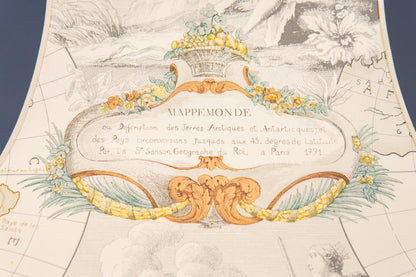 MAPPEMONDE
ou Description des Terres Arctiques et Antarticques, et
des Pays circonvoisins jusques aux 45. degres de latitude
Par Le Sr. Sanson Geographe du Roi, a Paris 1791
SAF